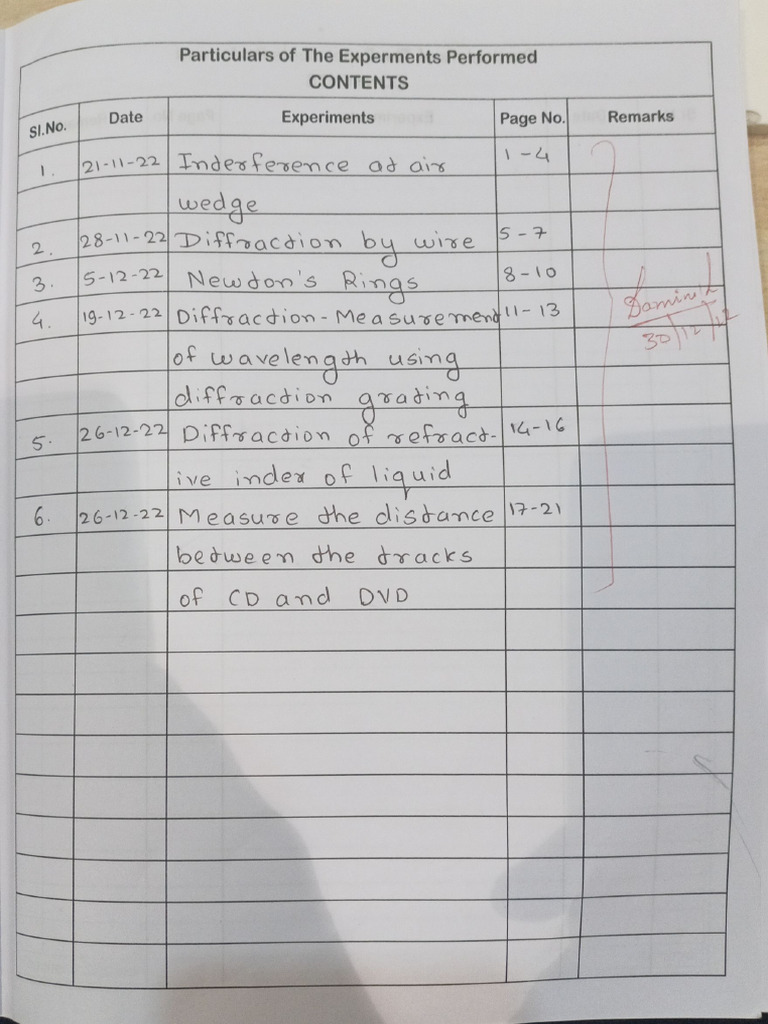 Particulars of The Experments Performed
CONTENTS
Sl.No. Date Experiments Page No. Remarks
1. 21-11-22 Interference at air 1-4
wedge
2. 28-11-22 Diffraction by wire 5-7
3. 5-12-22 Newton's Rings 8-10
4. 19-12-22 Diffraction-Measurement 11-13
of wavelength using
diffraction grating
5. 26-12-22 Diffraction of refract- 14-16
ive index of liquid
6. 26-12-22 Measure the distance 17-21
between the tracks
of CD and DVD
30/12/22